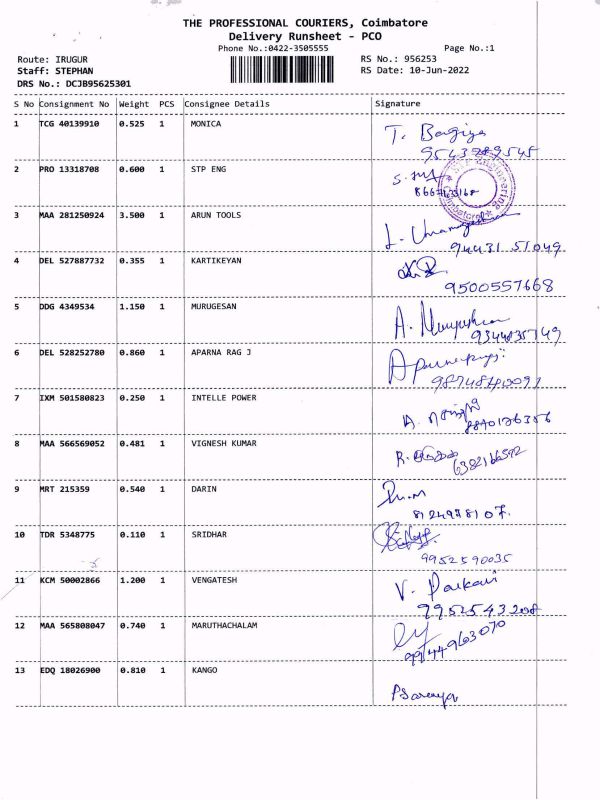 THE PROFESSIONAL COURIERS, Coimbatore
Delivery Runsheet - PCO
Phone No.:0422-3505555 Page No.:1
Route: IRUGUR RS No.: 956253
Staff: STEPHAN RS Date: 10-Jun-2022
DRS No.: DCJB95625301
S No Consignment No Weight PCS Consignee Details Signature
1 TCG 40139910 0.525 1 MONICA T. Bagiya
9543289545
2 PRO 13318708 0.600 1 STP ENG
3 MAA 281250924 3.500 1 ARUN TOOLS
94431 51049
4 DEL 527887732 0.355 1 KARTIKEYAN
9500557668
5 DDG 4349534 1.150 1 MURUGESAN A.
9344835749
6 DEL 528252780 0.860 1 APARNA RAG J
7 IXM 501580823 0.250 1 INTELLE POWER
8870126356
8 MAA 566569052 0.481 1 VIGNESH KUMAR R.
6382166592
9 MRT 215359 0.540 1 DARIN
8124978107.
10 TDR 5348775 0.110 1 SRIDHAR
9952590035
11 KCM 50002866 1.200 1 VENGATESH V.
9952543208
12 MAA 565808047 0.740 1 MARUTHACHALAM
9944963070
13 EDQ 18026900 0.810 1 KANGO
P Saranya